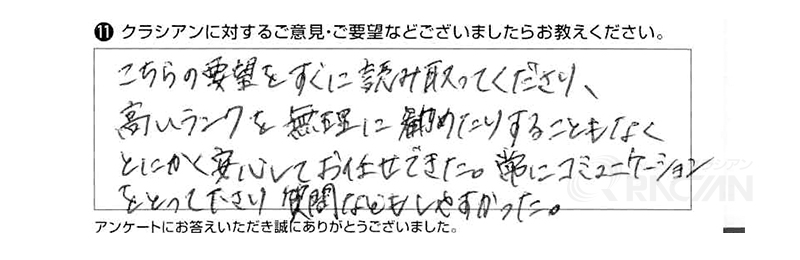 ⓫ クラシアンに対するご意見・ご要望などございましたらお教えください。
こちらの要望をすぐに読み取ってくださり、
高いランクを無理に勧めたりすることもなく
とにかく安心してお任せできた。常にコミュニケーション
をとって下さり質問などもしやすかった。
アンケートにお答えいただき誠にありがとうございました。